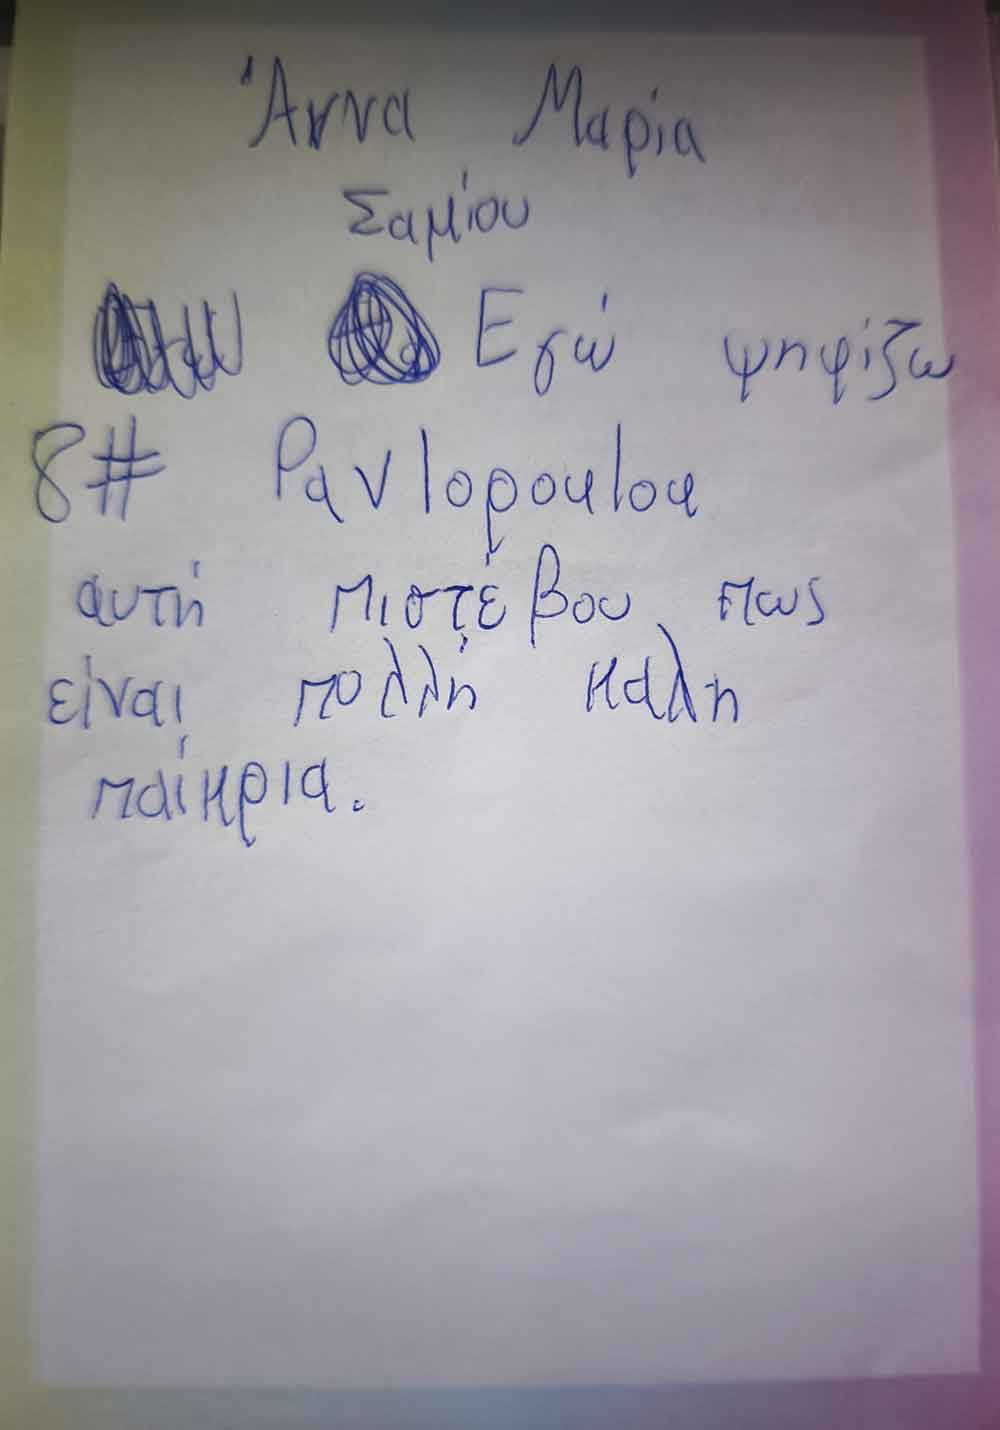 Άννα Μαρία
Σαμίου
Εγώ ψηφίζω
8#
αυτή πιστέβου πως
είναι πολλή καλη
παίκρια.